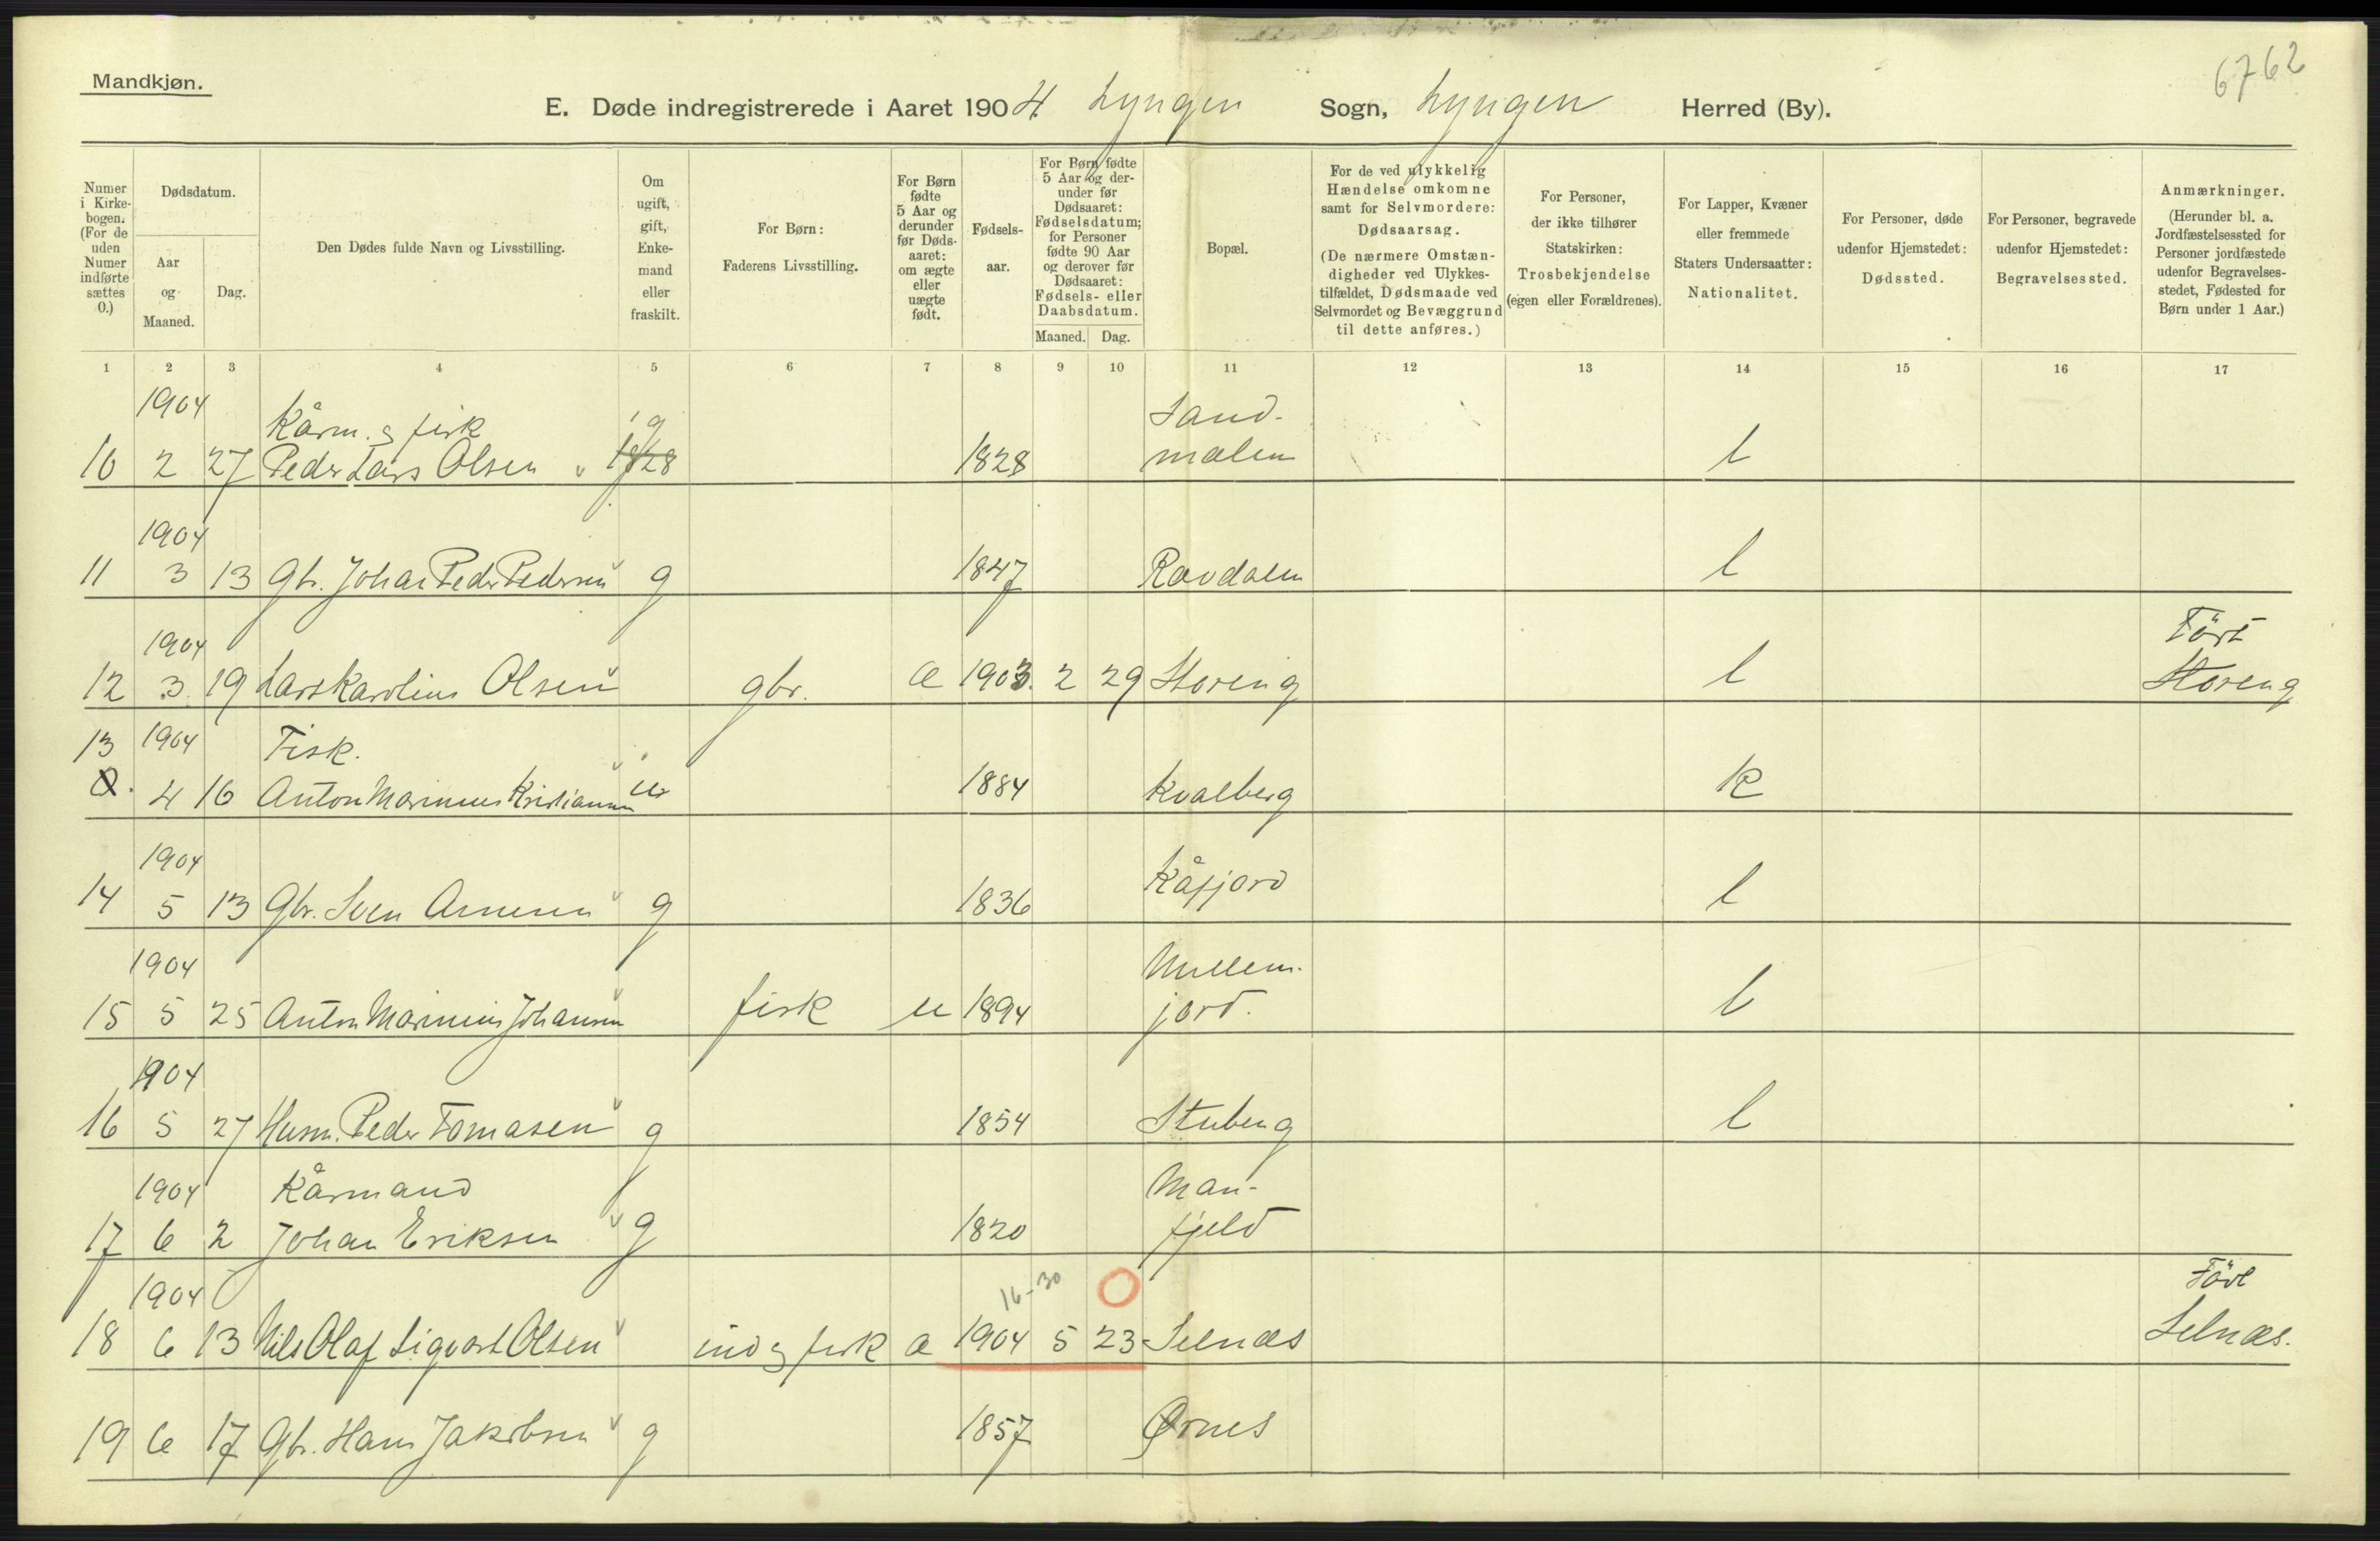 6762
Mandkjøn.
E. Døde indregistrerede i Aaret 1904. Lyngen Sogn, Lyngen Herred (By).
Numer i Kirkebogen. (For de uden Numer indførte sættes 0.)
Dødsdatum.
Aar og Maaned.
Dag.
Den Dødes fulde Navn og Livsstilling.
Om ugift, gift, Enkemand eller fraskilt.
For Børn: Faderens Livsstilling.
For Børn fødte 5 Aar og derunder før Dødsaaret: om ægte eller uægte født.
Fødselsaar.
For Børn fødte 5 Aar og derunder før Dødsaaret: Fødselsdatum; for Personer fødte 90 Aar og derover før Dødsaaret: Fødsels- eller Daabsdatum.
Maaned. Dag.
Bopæl.
For de ved ulykkelig Hændelse omkomne samt for Selvmordere: Dødsaarsag. (De nærmere Omstændigheder ved Ulykkestilfældet, Dødsmaade ved Selvmordet og Bevæggrund til dette anføres.)
For Personer, der ikke tilhører Statskirken: Trosbekjendelse (egen eller Forældrenes).
For Lapper, Kvæner eller fremmede Staters Undersaatter: Nationalitet.
For Personer, døde udenfor Hjemstedet: Dødssted.
For Personer, begravede udenfor Hjemstedet: Begravelsessted.
Anmærkninger. (Herunder bl. a. Jordfæstelsessted for Personer jordfæstede udenfor Begravelsesstedet, Fødested for Børn under 1 Aar.)
1 2 3 4 5 6 7 8 9 10 11 12 13 14 15 16 17
1904 Kårm. & fisk g Sand-
10 2 27 Peder Lars Olsen 1828 1828 malen l
1904
11 3 13 Gbr. Johan Peder Pedersen g 1847 Rovdalen l
1904 Föst
12 3 19 Lars Karolius Olsen gbr. æ 1903 2 29 Storeng l Storeng
13 1904 Fisk.
0. 4 16 Anton Marinius Kristiansen u 1884 Kvalberg k
1904 Kåfjord
14 5 13 Gbr. Sven Arnesen g 1836 l
1904
15 5 25 Anton Marinius Johansen fisk u 1894 jord. l
1904
16 5 27 Husm. Peder Tomasen g 1854 Stubeng l
1904 Kårmand Man-
17 6 2 Johan Eriksen g 1820 fjeld
1904 16-30 Föd
18 6 13 Nils Olaf Sigvart Olsen ind & fisk æ 1904 5 23 Selnæs Selnæs.
19 6 17 Gbr. Hans Jakobsen g 1857 Ørnes